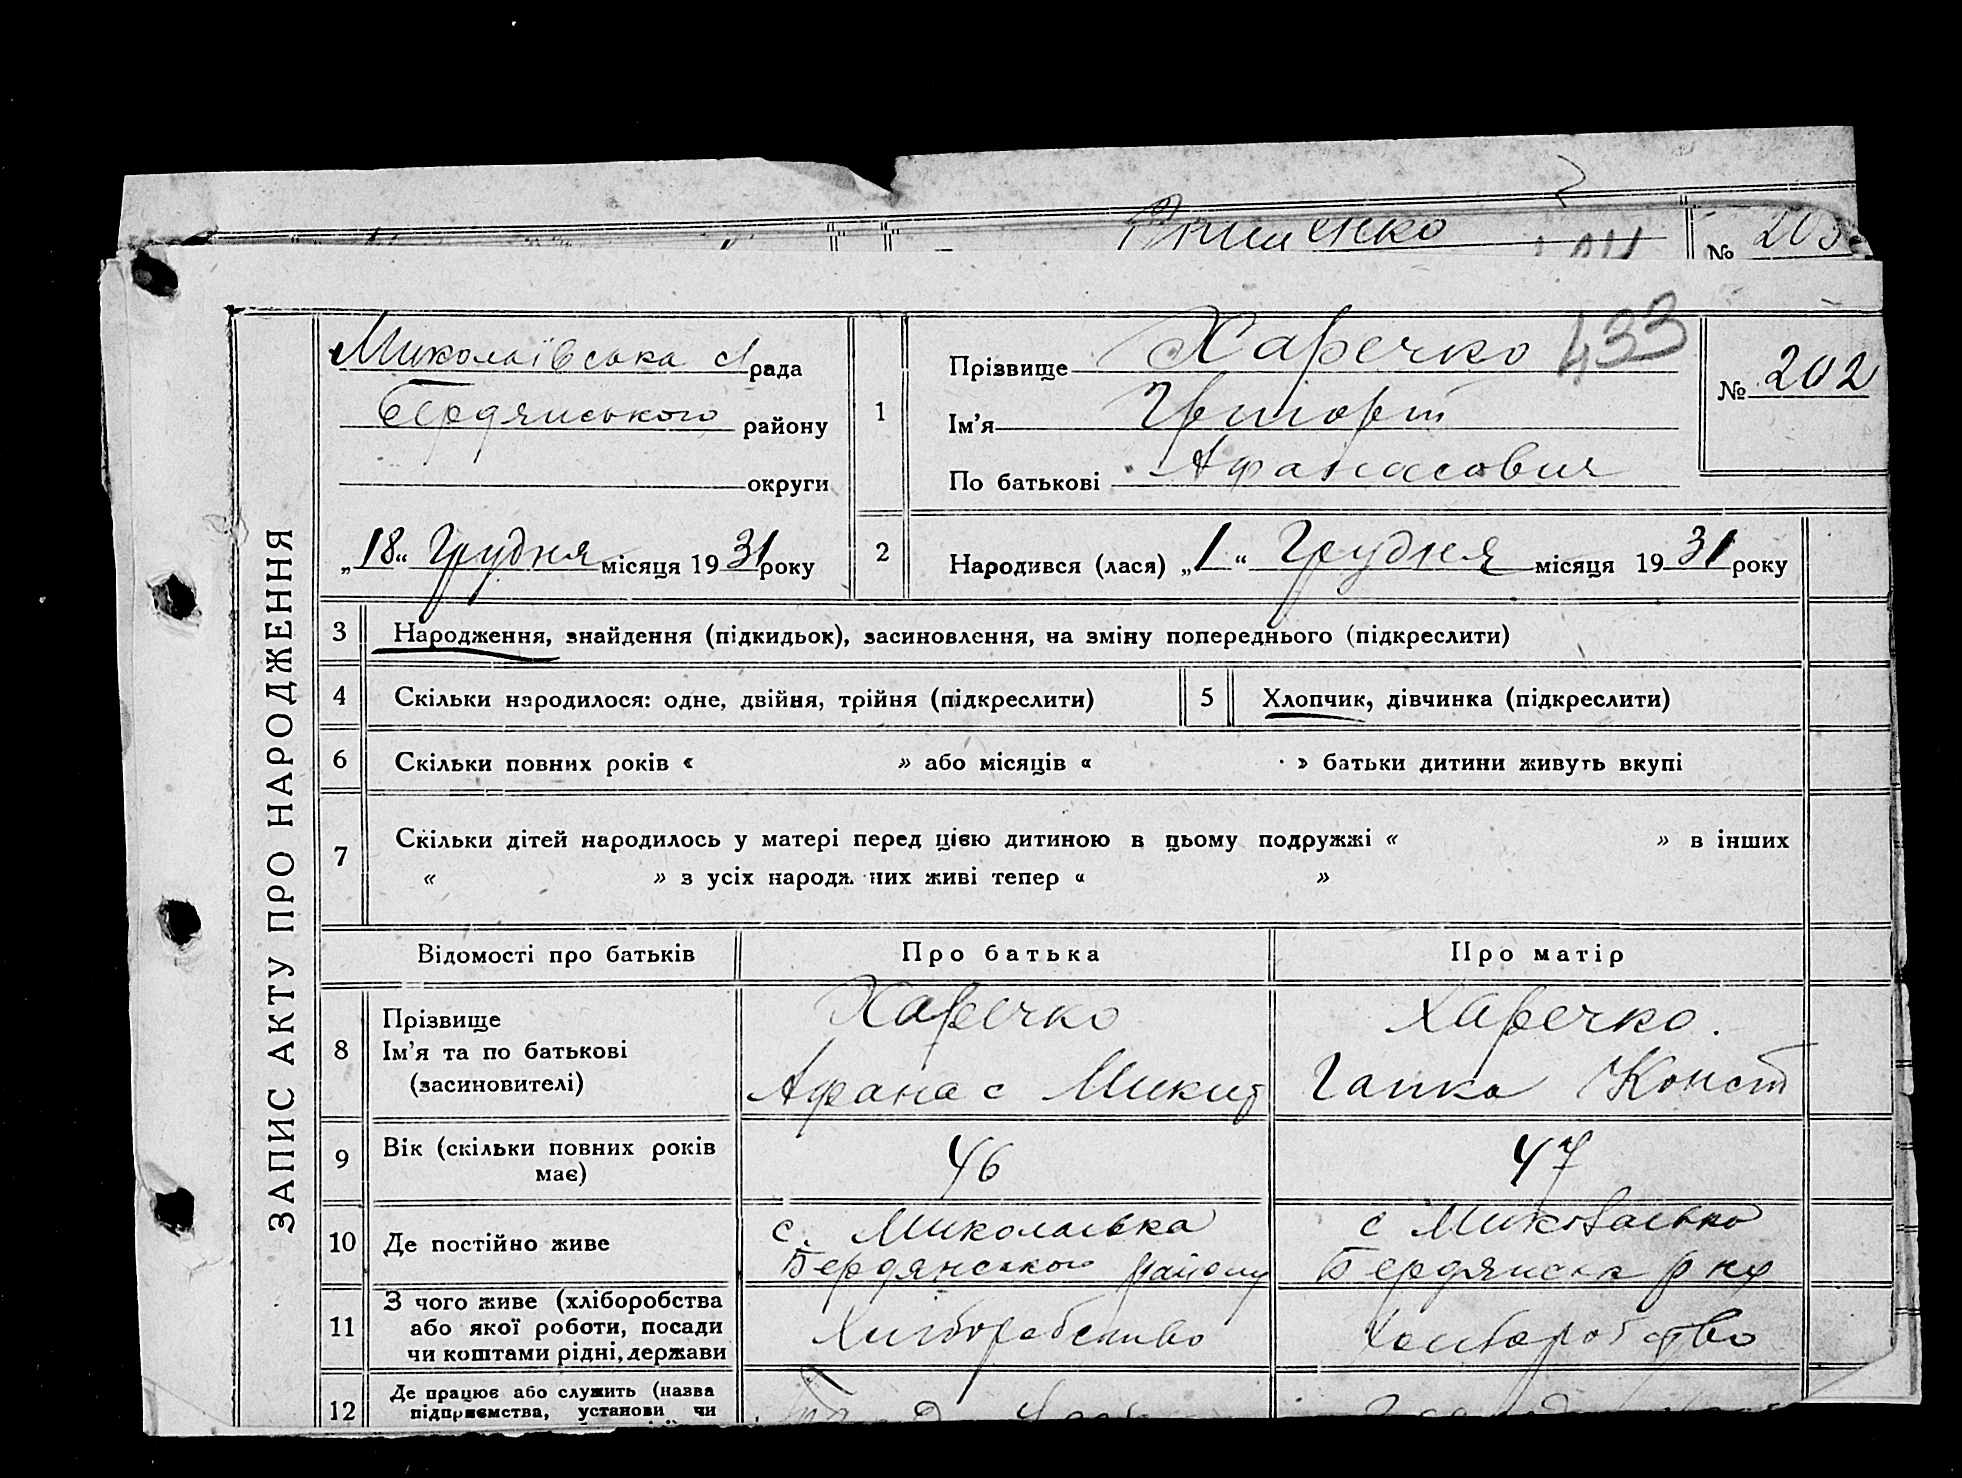 № 203
ЗАПИС АКТУ ПРО НАРОДЖЕННЯ
Миколаївська с/рада
Бердянського району
округи
„18“ Грудня місяця 1931 року
1
Прізвище Харечко 433
Ім'я Григорій
По батькові Афанасович
№ 202
2
Народився (лася) „1“ Грудня місяця 1931 року
3 Народження, знайдення (підкидьок), засиновлення, на зміну попереднього (підкреслити)
4 Скільки народилося: одне, двійня, трійня (підкреслити) 5 Хлопчик, дівчинка (підкреслити)
6 Скільки повних років « » або місяців « » батьки дитини живуть вкупі
7 Скільки дітей народилось у матері перед цією дитиною в цьому подружжі « » в інших
« » з усіх народж них живі тепер « »
Відомості про батьків Про батька Про матір
8 Прізвище Харечко Харечко.
Ім'я та по батькові
(засиновителі) Афанас Микит Гапка Конст
9 Вік (скільки повних років має) 46 47
10 Де постійно живе с. Миколаївка с Миколаївка
Бердянського району Бердянськ р ну
11 З чого живе (хліборобства
або якої роботи, посади
чи коштами рідні, держави Хліборобство Хліборобство
12 Де працює або служить (назва
підприємства, установи чи